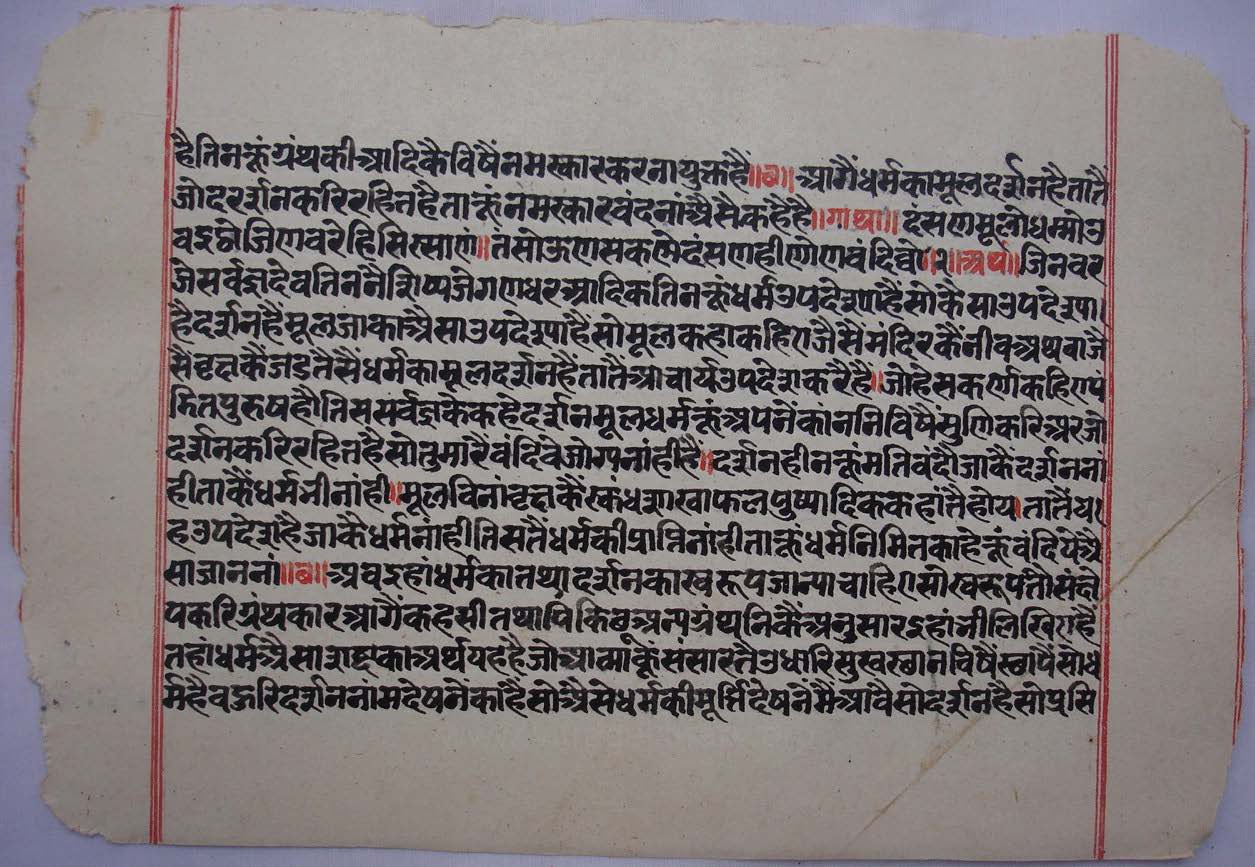 हैतिनकूंग्रंथकीआदिकैविषैंनमस्कारकरनायुक्तहैं॥ब॥आगैंधर्मकामूलदर्शनहैतातैं
जोदर्शनकरिरहितहैताकूंनमस्कारवंदनांअैसैकहैहै॥गाथा॥दंसणमूलोधम्मोउ
वइठोजिणवरेहिसिस्साणं॥तंसोऊणसकणेदंसणहीणोणवंदिव्वो॥२॥अर्थ॥जिनवर
जेसर्वज्ञदेवतिननैंशिष्यजेगणधरआदिकतिनकूंधर्मउपदेश्याहैंसोकैसाउपदेश्या।
हैदर्शनहैमूलजाकाअैसाउपदेश्याहैंसोमूलकहाकहिएजैसैंमंदिरकैंनीवअथवाजै
सैवृक्षकैंजडतैसैंधर्मकामूलदर्शनहैंतातैंआचार्यउपदेशकरैहैं॥जोहेसकर्णकहिएपं
डितपुरुषहौतिससर्वज्ञकेकहेदर्शनमूलधर्मकूंअपनेंकाननिविषैंसुणिकरिअरजो
दर्शनकरिरहितहैसोतुमारैंवंदिवेजोग्यनांहीहैं॥दर्शनहीनकूंमतिवंदौजाकैंदर्शननां
हीताकैंधर्मभीनांही॥मूलविनांवृक्षकैंस्कंधशाखाफलपुष्पादिककहांतैंहोय।तातैंय।
हउपदेशहैजाकैधर्मनांहीतिसतैंधर्मकीप्राप्तिनांहीताकूंधर्मनिमितकाहेकूंवंदियेअै
साजाननां॥ब॥अवइहांधर्मकातथादर्शनकास्वरूपजान्याचाहिएसोस्वरूपतौसंक्षे
पकरिग्रंथकारआगैंकहसीतथापिकिछूअन्यग्रंथनिकैंअनुसारइहांभीलिखिएहैं
तहांधर्मअैसाशब्दकाअर्थयहहैजोआत्माकूंसंसारतैंउधारिसुखस्थानविषैंस्थापैंसोध
र्महैवहुरिदर्शननांमदेषनेंकाहैसोअैसेधर्मकीमूर्त्तिदेषनेंमैंआवैसोदर्शनहैसोप्रसि